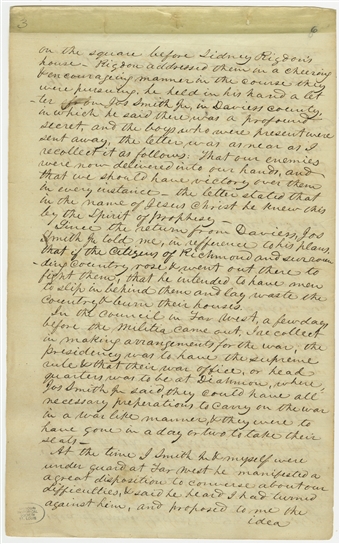 3 6
on the square before Sidney Rigdon's
house – Rigdon addressed them in a cheering
& encouraging manner in the course they
were pursuing: he held in his hand a let
ter from Jos Smith Jr, in Daviess County,
in which he said there was a profound
secret, and the boys who were present were
sent away; the letter was as near as I
recollect it as follows: That our enemies
were now delivered into our hands, and
that we should have victory over them
in every instance – the letter stated that
in the name of Jesus Christ he knew this
by the Spirit of Prophesy –
Since the return from Daviess, Jos
Smith Jr told me, in refference to his plans,
that if the Citizens of Richmond and surroun
–ding Country rose & went out there to
fight them, that he intended to have men
to slip in behind them and lay waste the
Country & burn their houses.
In the Council in Far West, a few days
before the Militia came out, I recollect
in making arrangements for the war, the
Presidency was to have the supreme
rule & that their war office, or head
quarters was to be at Diahmon, where,
Jos Smith Jr said, they could have all
necessary preperations to carry on the war
in a war like manner, & they were to
have gone in a day or two to take their
seats –
At the time J Smith Jr & myself were
under guard at Far West he manifested a
a great disposition to converse about our
difficulties, & said he heard I had turned
against him, and proposed to me the
idea